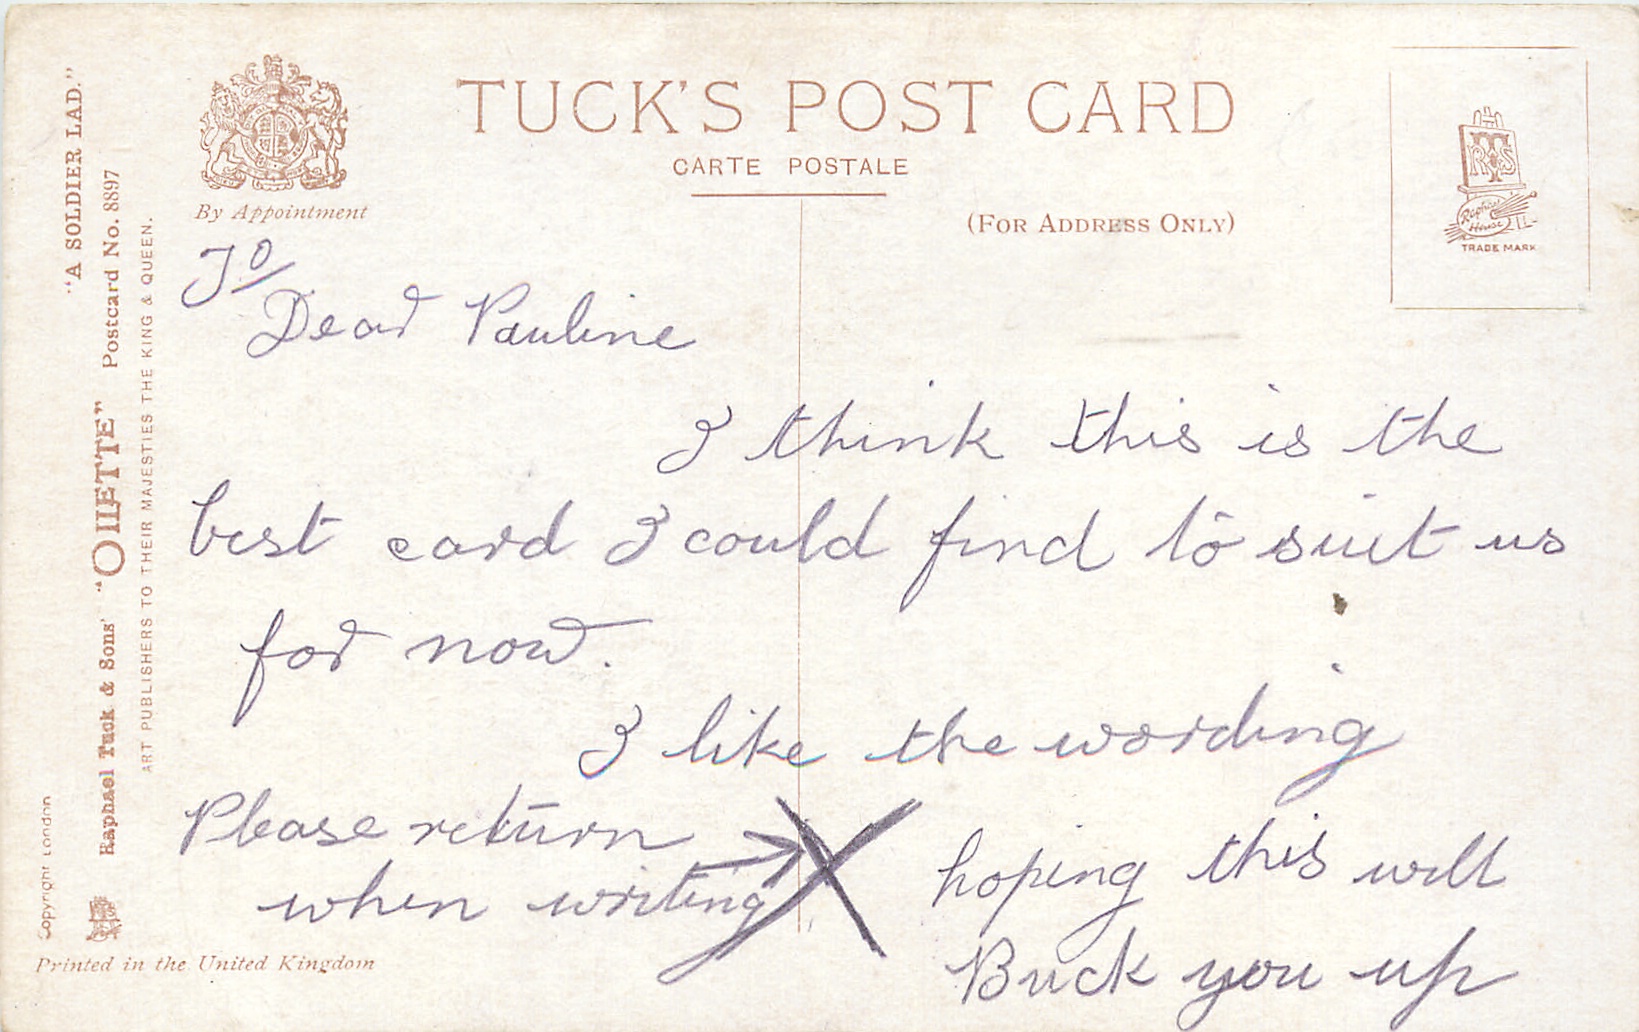 TUCK'S POST CARD
CARTE POSTALE
(FOR ADDRESS ONLY)
By Appointment
RTS
Raphael
House
TRADE MARK
"A SOLDIER LAD."
Raphael Tuck & Sons' "OILETTE" Postcard No. 8897
ART PUBLISHERS TO THEIR MAJESTIES THE KING & QUEEN.
Copyright London
Printed in the United Kingdom
To
Dear Pauline
I think this is the
best card I could find to suit us
for now.
I like the wording
Please return
when writing
X
hoping this will
Buck you up